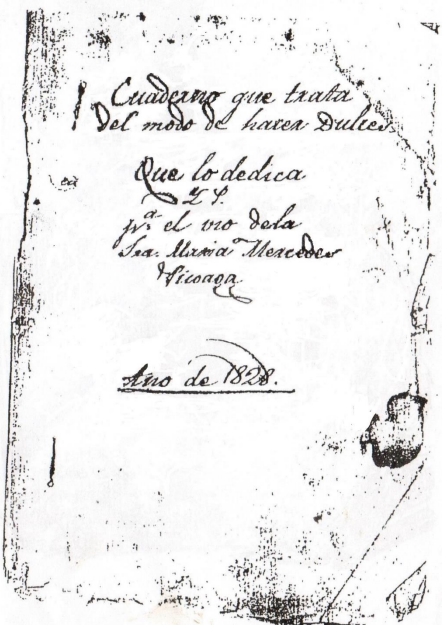 Cuaderno que trata
del modo de haxer Dulces.
Que lo dedica
p.ª el uso dela
Sra. Maria Mercedes
Picoaga
Año de 1828.